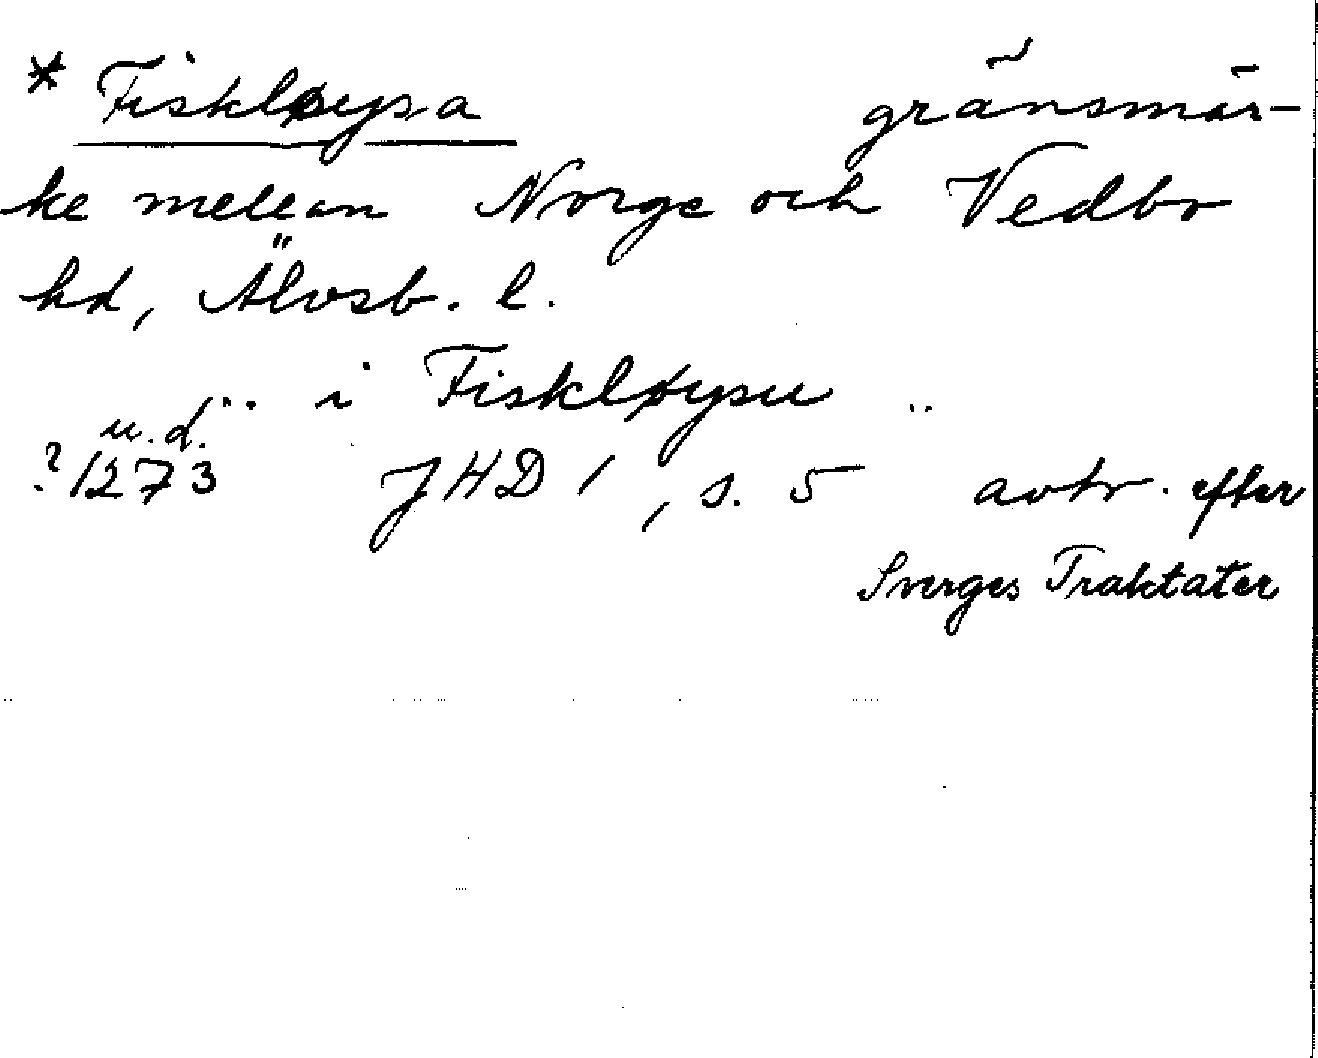 * Fiskløysa gränsmär-
ke mellan Norge och Vedbo
hd, Älvsb. l.
.. i Fiskløysu ..
u.d.
?1273 JHD 1, s. 5 avtr. efter
Sverges Traktater